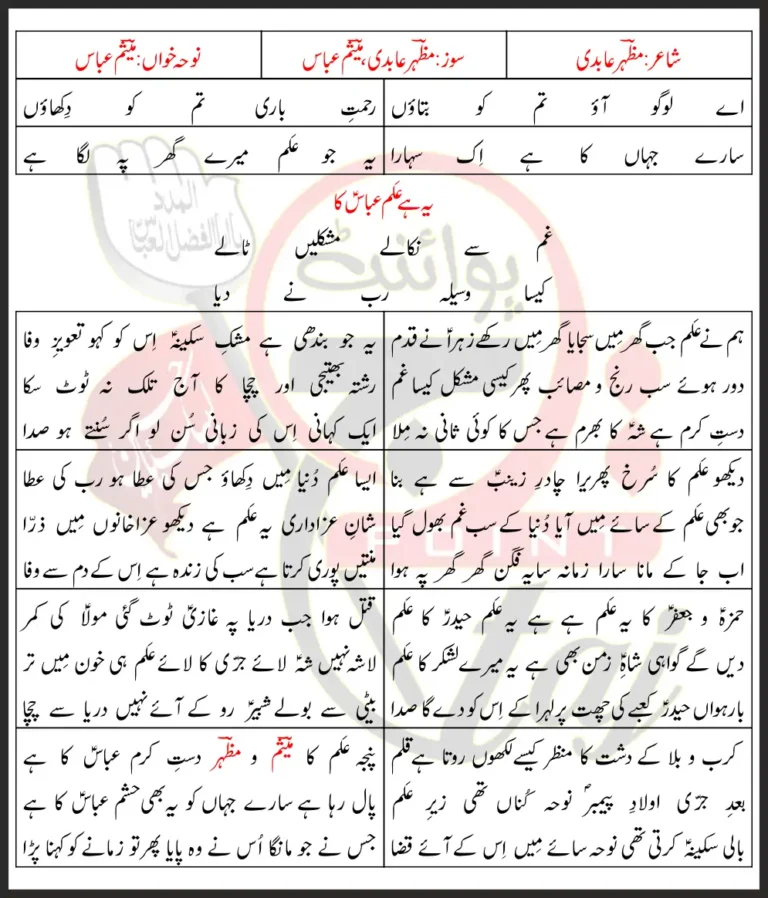 شاعر: مظہر عابدی
سوز: مظہر عابدی، میثم عباس
نوحہ خواں: میثم عباس
اے لوگو آؤ تم کو بتاؤں
رحمتِ باری تم کو دِکھاؤں
سارے جہاں کا ہے اِک سہارا
یہ جو علم میرے گھر پہ لگا ہے
یہ ہے عَلم عباسؑ کا
غم سے نکالے مشکلیں ٹالے
کیسا وسیلہ رب نے دیا
ہم نے عَلم جب گھر مِیں سجایا گھر مِیں رکھے زہراؑ نے قدم
دور ہوئے سب رنج و مصائب پھر کیسی مشکل کیسا غم
دستِ کرم ہے شہؑ کا بھرم ہے جس کا کوئی ثانی نہ مِلا
یہ جو بندھی ہے مشکِ سکینہؑ اِس کو کہو تعویزِ وفا
رشتہ بھتیجی اور چچا کا آج تلک نہ ٹوٹ سکا
ایک کہانی اِس کی زبانی سُن لو اگر سُنتے ہو صدا
دیکھو عَلم کا سُرخ پھریرا چادرِ زینبؑ سے ہے بنا
جو بھی عَلم کے سائے مِیں آیا دُنیا کے سب غم بھول گیا
اب جا کے مانا سارا زمانہ سایہ فگن گھر گھر پہ ہوا
ایسا عَلم دُنیا مِیں دِکھاؤ جس کی عطا ہو رب کی عطا
شانِ عزاداری یہ عَلم ہے دیکھو عزاخانوں مِیں ذرّا
منتیں پوری کرتا ہے سب کی زندہ ہے اِس کے دم سے وفا
حمزہؑ و جعفرؑ کا یہ عَلم ہے ہے یہ عَلم حیدرؑ کا عَلم
دیں گے گواہی شاہِؑ زمن بھی ہے یہ میرے لشکر کا عَلم
بارہواں حیدرؑ کعبے کی چھت پر لہرا کے اِس کو دے گا صدا
قتل ہوا جب دریا پہ غازیؑ ٹوٹ گئی مولاؑ کی کمر
لاشہ نہیں شہؑ لائے جرؑی کا لائے عَلم ہی خون مِیں تر
بیٹی سے بولے شبیرؑ رو کے آئے نہیں دریا سے چچا
کرب و بلا کے دشت کا منظر کیسے لکھوں روتا ہے قلم
بعدِ جرؑی اولادِ پیمبرؐ نوحہ کُناں تھی زیرِ عَلم
بالی سکینہؑ کرتی تھی نوحہ سائے مِیں اِس کے آئے قضا
پنجہ عَلم کا میثم و مظہر دستِ کرم عباسؑ کا ہے
پال رہا ہے سارے جہاں کو یہ بھی حشم عباسؑ کا ہے
جس نے جو مانگا اُس نے وہ پایا پھر تو زمانے کو کہنا پڑا